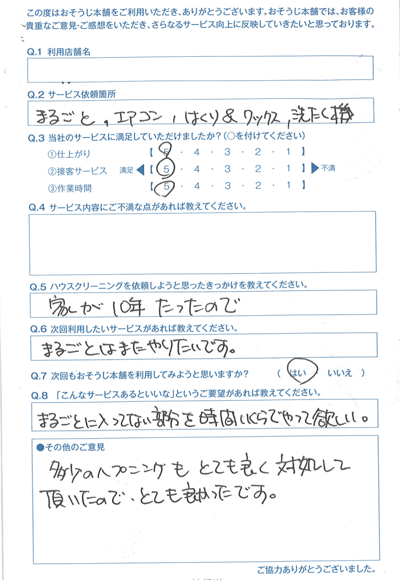 この度はおそうじ本舗をご利用いただき、ありがとうございます。おそうじ本舗では、お客様の
貴重なご意見・ご感想をいただき、さらなるサービス向上に反映していきたいと思っております。
Q.1 利用店舗名
Q.2 サービス依頼箇所
まるごと,エアコン,はくり&ワックス,洗たく機
Q.3 当社のサービスに満足していただけましたか?(○を付けてください)
①仕上がり 【 5 ・ 4 ・ 3 ・ 2 ・ 1 】
②接客サービス 満足 ◀【 5 ・ 4 ・ 3 ・ 2 ・ 1 】▶ 不満
③作業時間 【 5 ・ 4 ・ 3 ・ 2 ・ 1 】
Q.4 サービス内容にご不満な点があれば教えてください。
Q.5 ハウスクリーニングを依頼しようと思ったきっかけを教えてください。
家が10年たったので
Q.6 次回利用したいサービスがあれば教えてください。
まるごとはまたやりたいです。
Q.7 次回もおそうじ本舗を利用してみようと思いますか? ( はい いいえ )
Q.8 「こんなサービスあるといいな」というご要望があれば教えてください。
まるごとに入ってない部分を時間いくらでやって欲しい。
●その他のご意見
多少のハプニングもとても良く対処して
頂いたので、とても良かったです。
ご協力ありがとうございました。